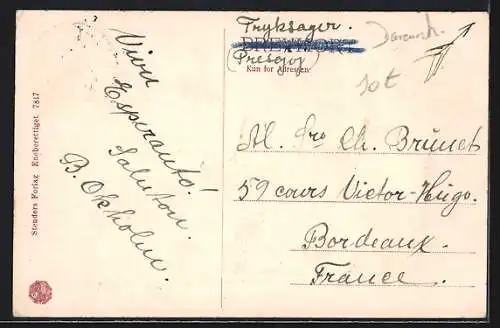 Vivu
Esperanto!
Saluton.
B. Okholm.
Stenders Forlag Eneberettiget 7817
Tryksager.
BREVKORT
(Presaĵoj)
Kun for Adressen.
Al. Sro Ch. Brunet
59 cours Victor-Hugo.
Bordeaux.
France.